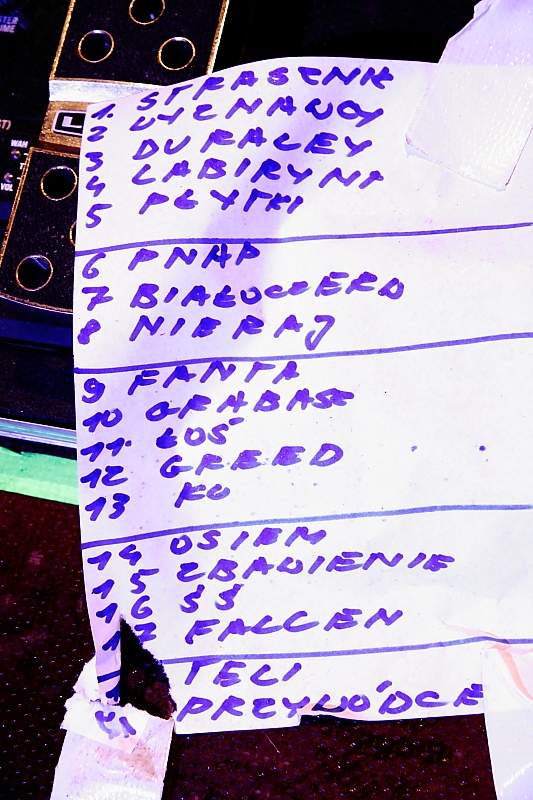 1. STRASZNE
2 WYZNAWCY
3 DURACEY
4 LABIRYNT
5 PŁYTKI
6 PNAP
7 BIAŁOWIERD
8 NIERAJ
9 FANTA
10 GRABASZ
11. ŁOŚ
12 GREED
13 KO
14 OSIEM
15 ZBAWIENIE
16 SS
17 FALLEN
TELI
PRZYWÓDCE
L
WAH
VOL